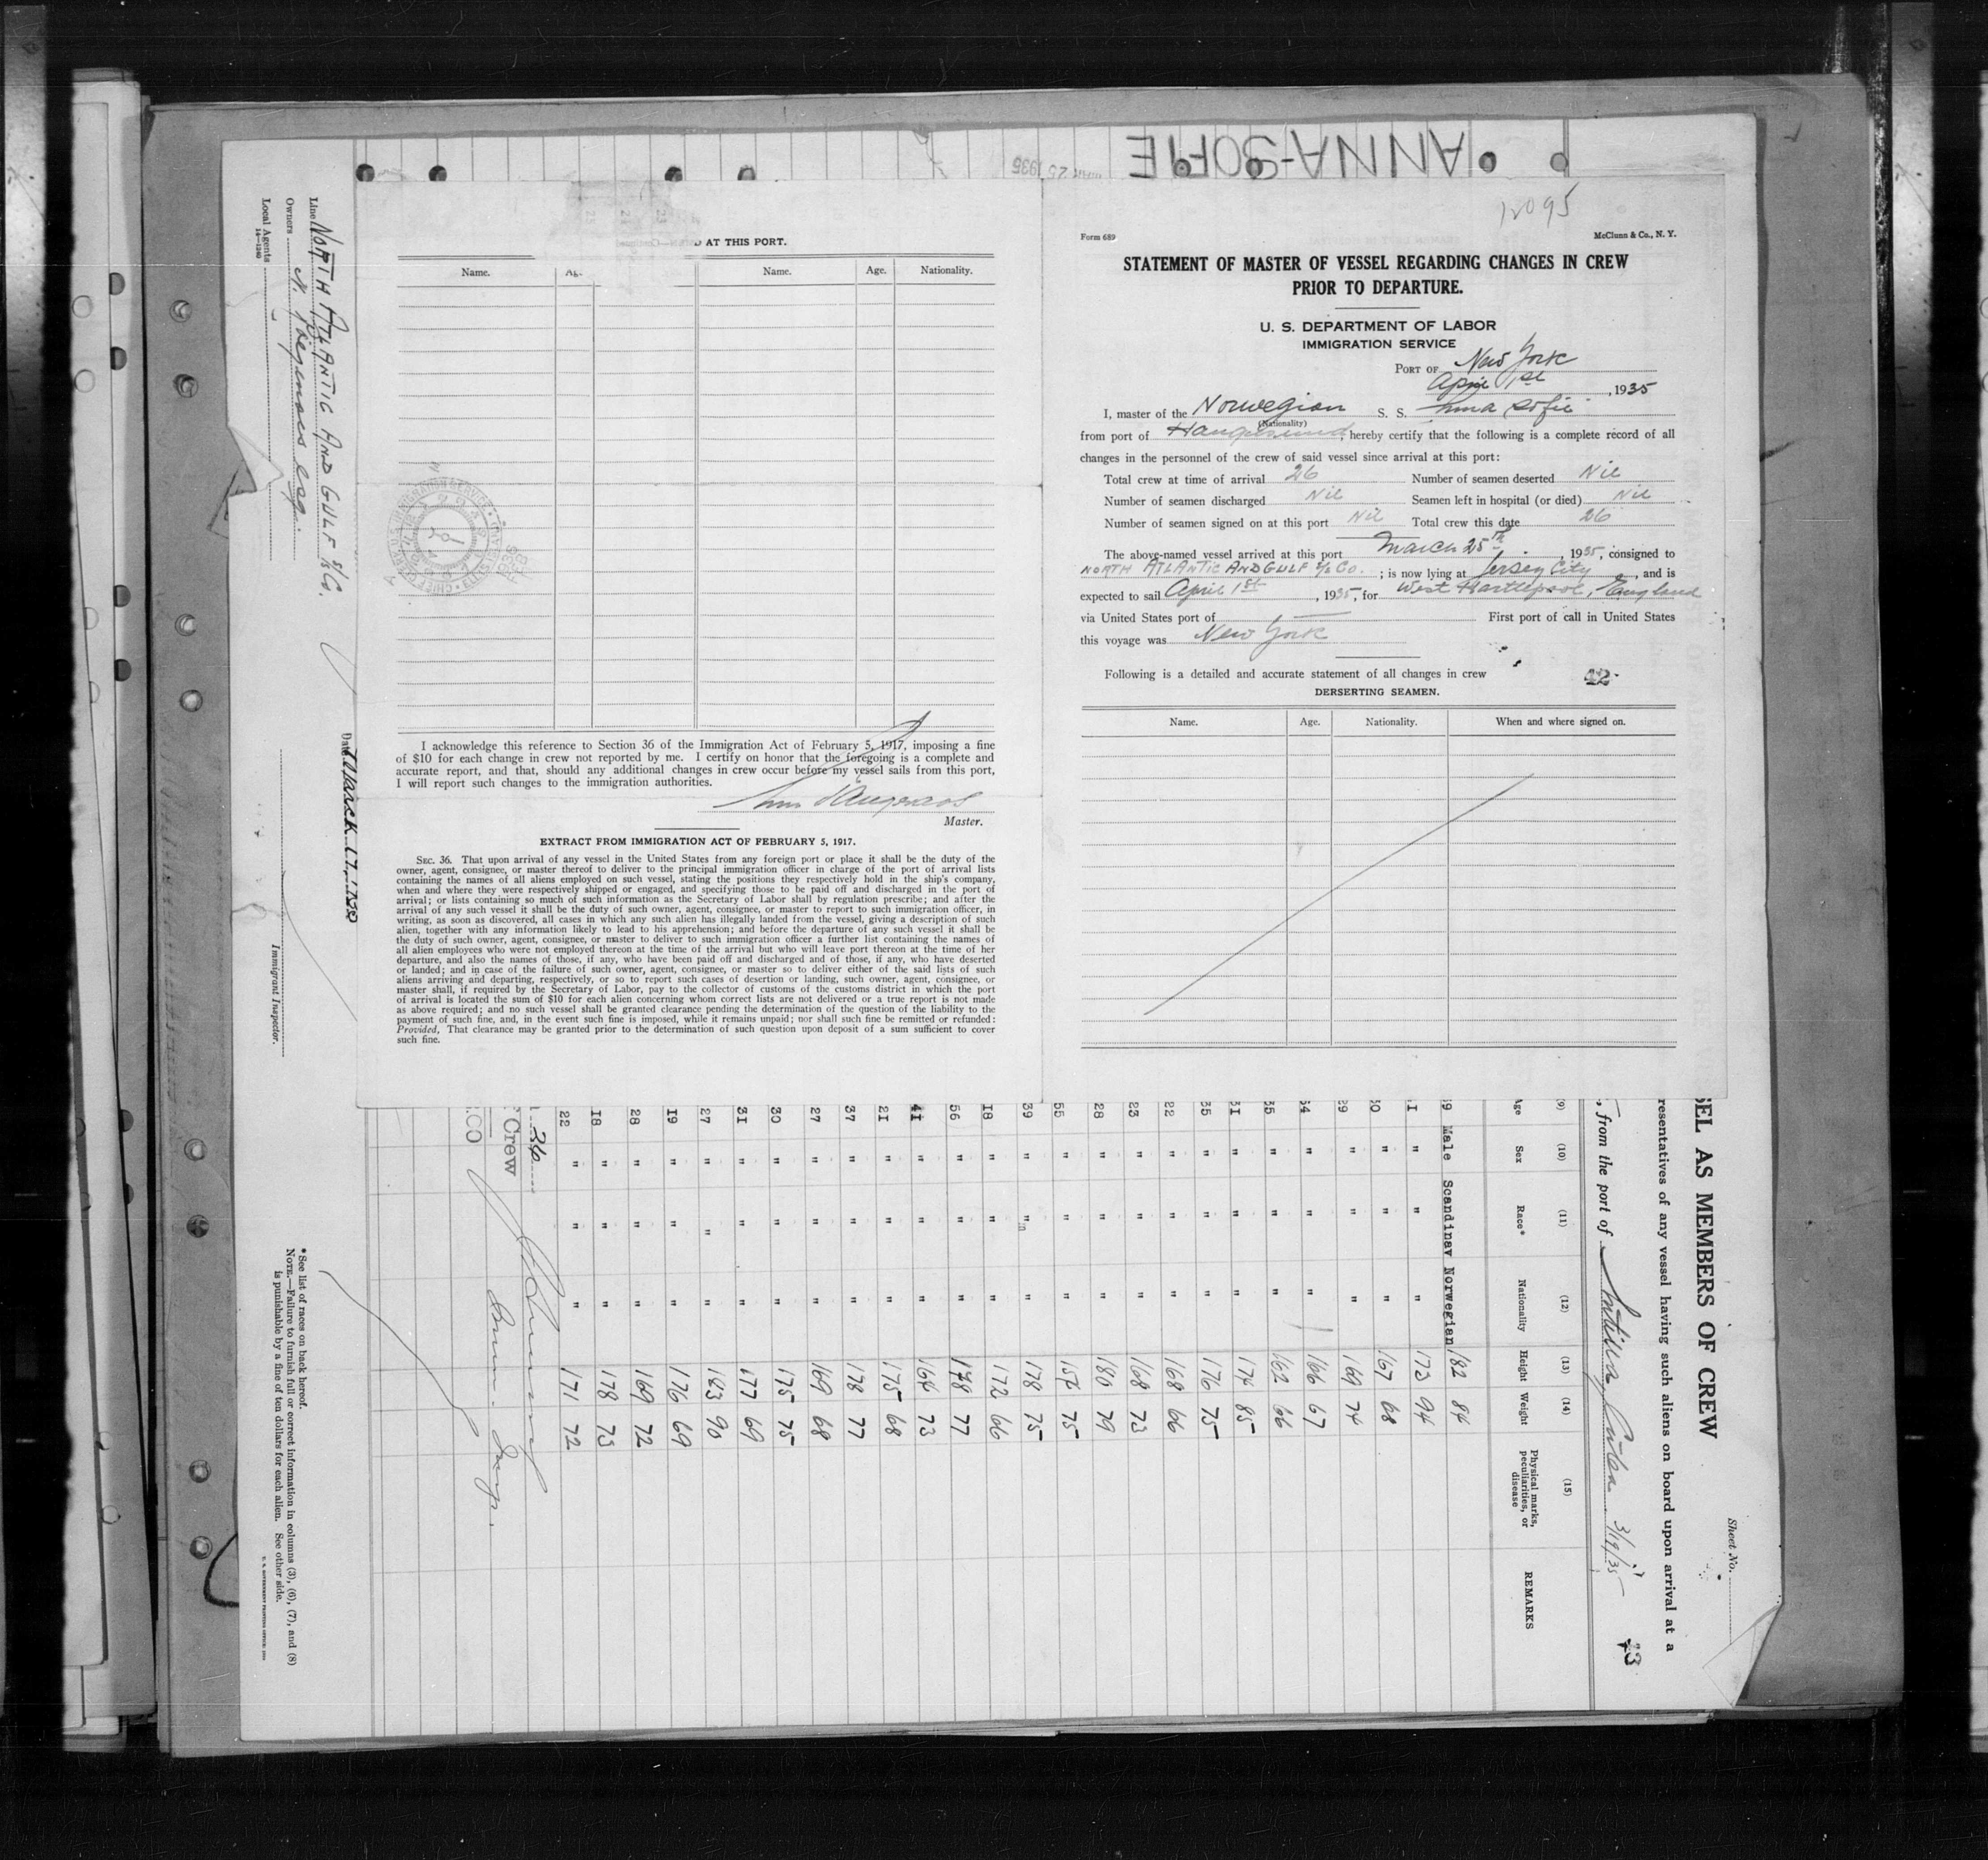 ANNA-SOFIE
MAR 25 1935
12095
Form 689
McClunn & Co., N. Y.
STATEMENT OF MASTER OF VESSEL REGARDING CHANGES IN CREW
PRIOR TO DEPARTURE.
U. S. DEPARTMENT OF LABOR
IMMIGRATION SERVICE
PORT OF New York
April 1st, 1935
I, master of the Norwegian S. S. Anna Sofie
(Nationality)
from port of Haugesund, hereby certify that the following is a complete record of all
changes in the personnel of the crew of said vessel since arrival at this port:
Total crew at time of arrival 26 Number of seamen deserted Nil
Number of seamen discharged Nil Seamen left in hospital (or died) Nil
Number of seamen signed on at this port Nil Total crew this date 26
The above-named vessel arrived at this port March 25th, 1935, consigned to
NORTH ATLANTIC AND GULF S/S Co. ; is now lying at Jersey City, and is
expected to sail April 1st, 1935, for West Hartlepool, England
via United States port of — First port of call in United States
this voyage was New York
Following is a detailed and accurate statement of all changes in crew
42
DERSERTING SEAMEN.
Name. Age. Nationality. When and where signed on.
D AT THIS PORT.
Name. Ag. Name. Age. Nationality.
I acknowledge this reference to Section 36 of the Immigration Act of February 5, 1917, imposing a fine
of $10 for each change in crew not reported by me. I certify on honor that the foregoing is a complete and
accurate report, and that, should any additional changes in crew occur before my vessel sails from this port,
I will report such changes to the immigration authorities.
Master.
EXTRACT FROM IMMIGRATION ACT OF FEBRUARY 5, 1917.
SEC. 36. That upon arrival of any vessel in the United States from any foreign port or place it shall be the duty of the
owner, agent, consignee, or master thereof to deliver to the principal immigration officer in charge of the port of arrival lists
containing the names of all aliens employed on such vessel, stating the positions they respectively hold in the ship's company,
when and where they were respectively shipped or engaged, and specifying those to be paid off and discharged in the port of
arrival; or lists containing so much of such information as the Secretary of Labor shall by regulation prescribe; and after the
arrival of any such vessel it shall be the duty of such owner, agent, consignee, or master to report to such immigration officer, in
writing, as soon as discovered, all cases in which any such alien has illegally landed from the vessel, giving a description of such
alien, together with any information likely to lead to his apprehension; and before the departure of any such vessel it shall be
the duty of such owner, agent, consignee, or master to deliver to such immigration officer a further list containing the names of
all alien employees who were not employed thereon at the time of the arrival but who will leave port thereon at the time of her
departure, and also the names of those, if any, who have been paid off and discharged and of those, if any, who have deserted
or landed; and in case of the failure of such owner, agent, consignee, or master so to deliver either of the said lists of such
aliens arriving and departing, respectively, or so to report such cases of desertion or landing, such owner, agent, consignee, or
master shall, if required by the Secretary of Labor, pay to the collector of customs of the customs district in which the port
of arrival is located the sum of $10 for each alien concerning whom correct lists are not delivered or a true report is not made
as above required; and no such vessel shall be granted clearance pending the determination of the question of the liability to the
payment of such fine, and, in the event such fine is imposed, while it remains unpaid; nor shall such fine be remitted or refunded:
Provided, That clearance may be granted prior to the determination of such question upon deposit of a sum sufficient to cover
such fine.
Line NORTH ATLANTIC AND GULF S/S Co.
Owners
Local Agents
14—1240
Date March
Immigrant Inspector.
Sheet No.
SEL AS MEMBERS OF CREW
resentatives of any vessel having such aliens on board upon arrival at a
, from the port of Antilla, Cuba 3/19/35
43
(9) (10) (11) (12) (13) (14) (15)
Age Sex Race* Nationality Height Weight Physical marks, peculiarities, or disease REMARKS
9 Male Scandinav Norwegian 182 84
1 " " " 173 94
0 " " " 167 68
9 " " " 169 74
4 " " " 166 67
35 " " " 162 66
31 " " " 174 85
35 " " " 176 75
22 " " " 168 66
23 " " " 168 73
28 " " " 180 79
55 " " " 157 75
39 " " " 178 75
18 " " " 172 66
56 " " " 178 77
41 " " " 164 73
21 " " " 175 68
37 " " " 178 77
27 " " " 169 68
30 " " " 175 75
31 " " " 177 69
27 " " " 163 90
19 " " " 176 69
28 " " " 169 72
18 " " " 178 73
22 " " " 171 72
Crew
.CO
Imm. Insp.
*See list of races on back hereof.
NOTE.—Failure to furnish full or correct information in columns (3), (6), (7), and (8)
is punishable by a fine of ten dollars for each alien. See other side.